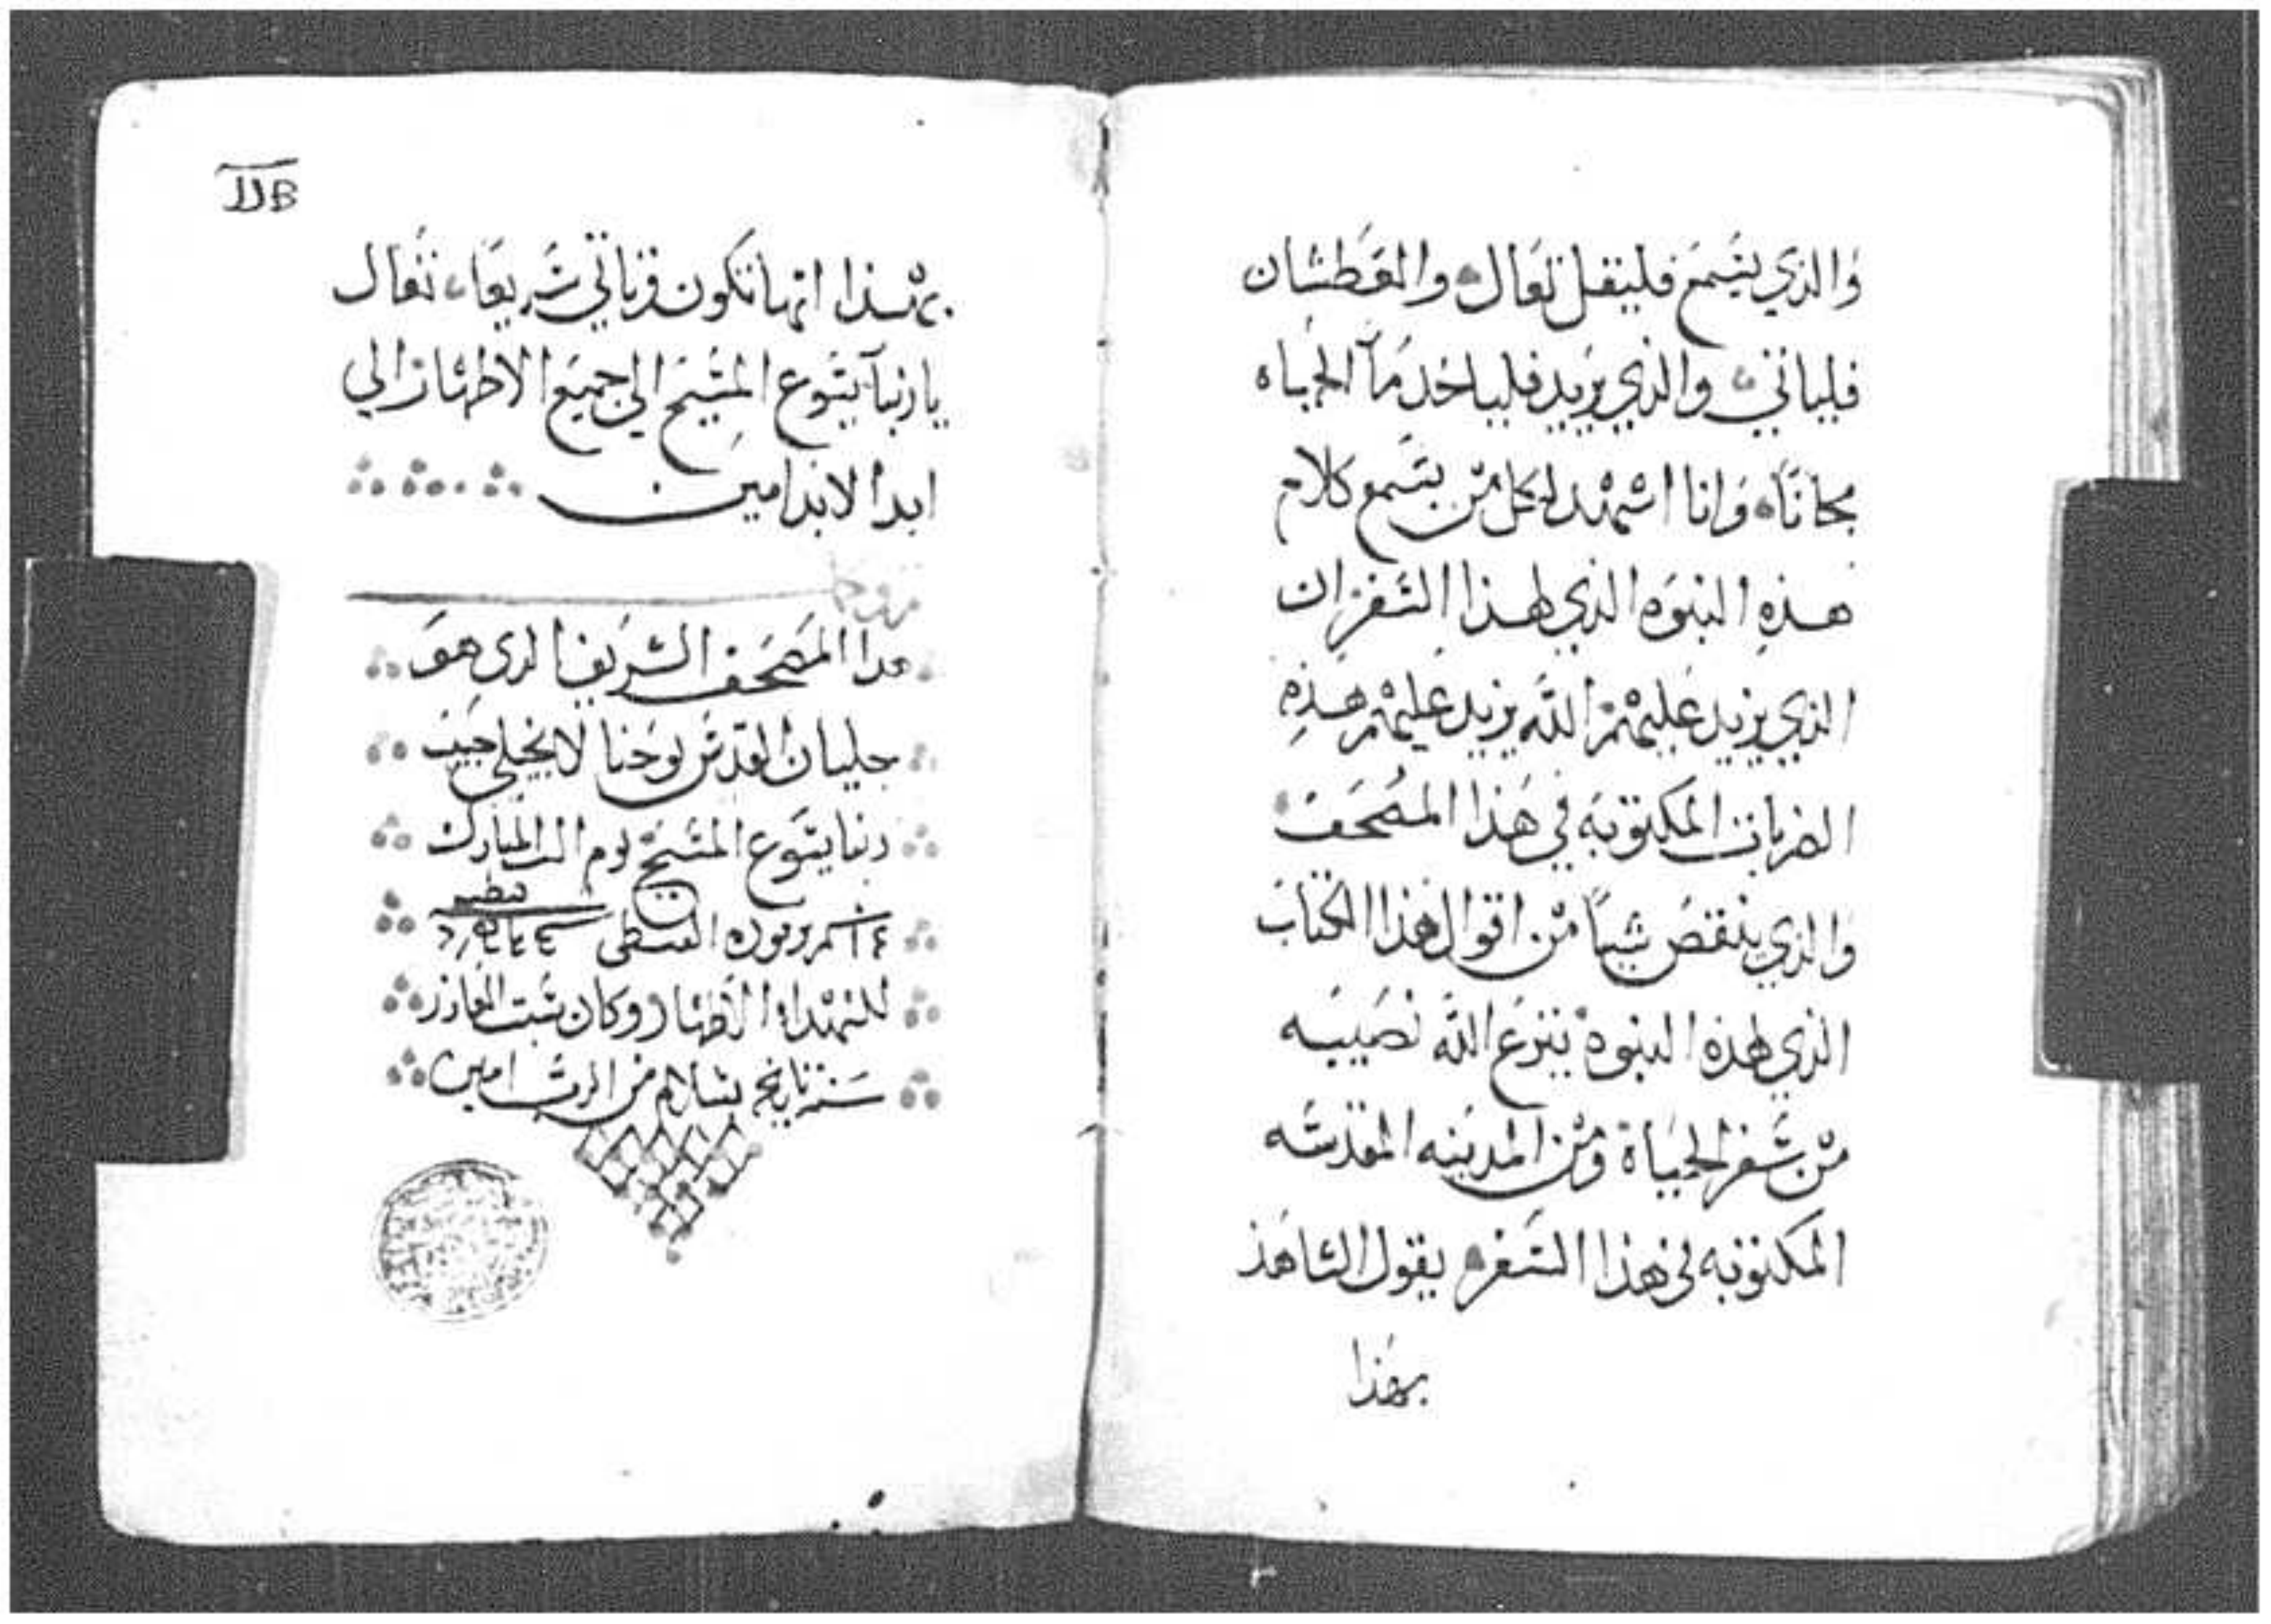 والذي يسمع فليقل تعال والعطشان
فلياتي والذي يريد فلياخد مآ الحياه
مجانا وانا اشهد لكل من يسمع كلام
هذه النبوه الذي لهذا السفر ان
الذي يزيد عليهم الله يزيد عليهم هذه
الضربات المكتوبه في هذا المصحف
والذي ينقص شياً من اقوال هذا الكتاب
الذي لهذه النبوة ينزع الله نصيبه
من سفر الحياة ومن المدينه المقدسه
المكتوبه في هذا السفر يقول الشاهد
بهذا
بهذا انها تكون وتاتي سريعا تعال
ياربنا يسوع المسيح الي جميع الاطهار الي
ابد الابد امين
هدا المصحف الشريف الدي هو
جليان القديس يوحنا الانجيلي حبيب
ربنا يسوع المسيح يوم المبارك
القبطي
للشهداء الاطهار وكان
سنة تاريخه بسلام من الرب امين